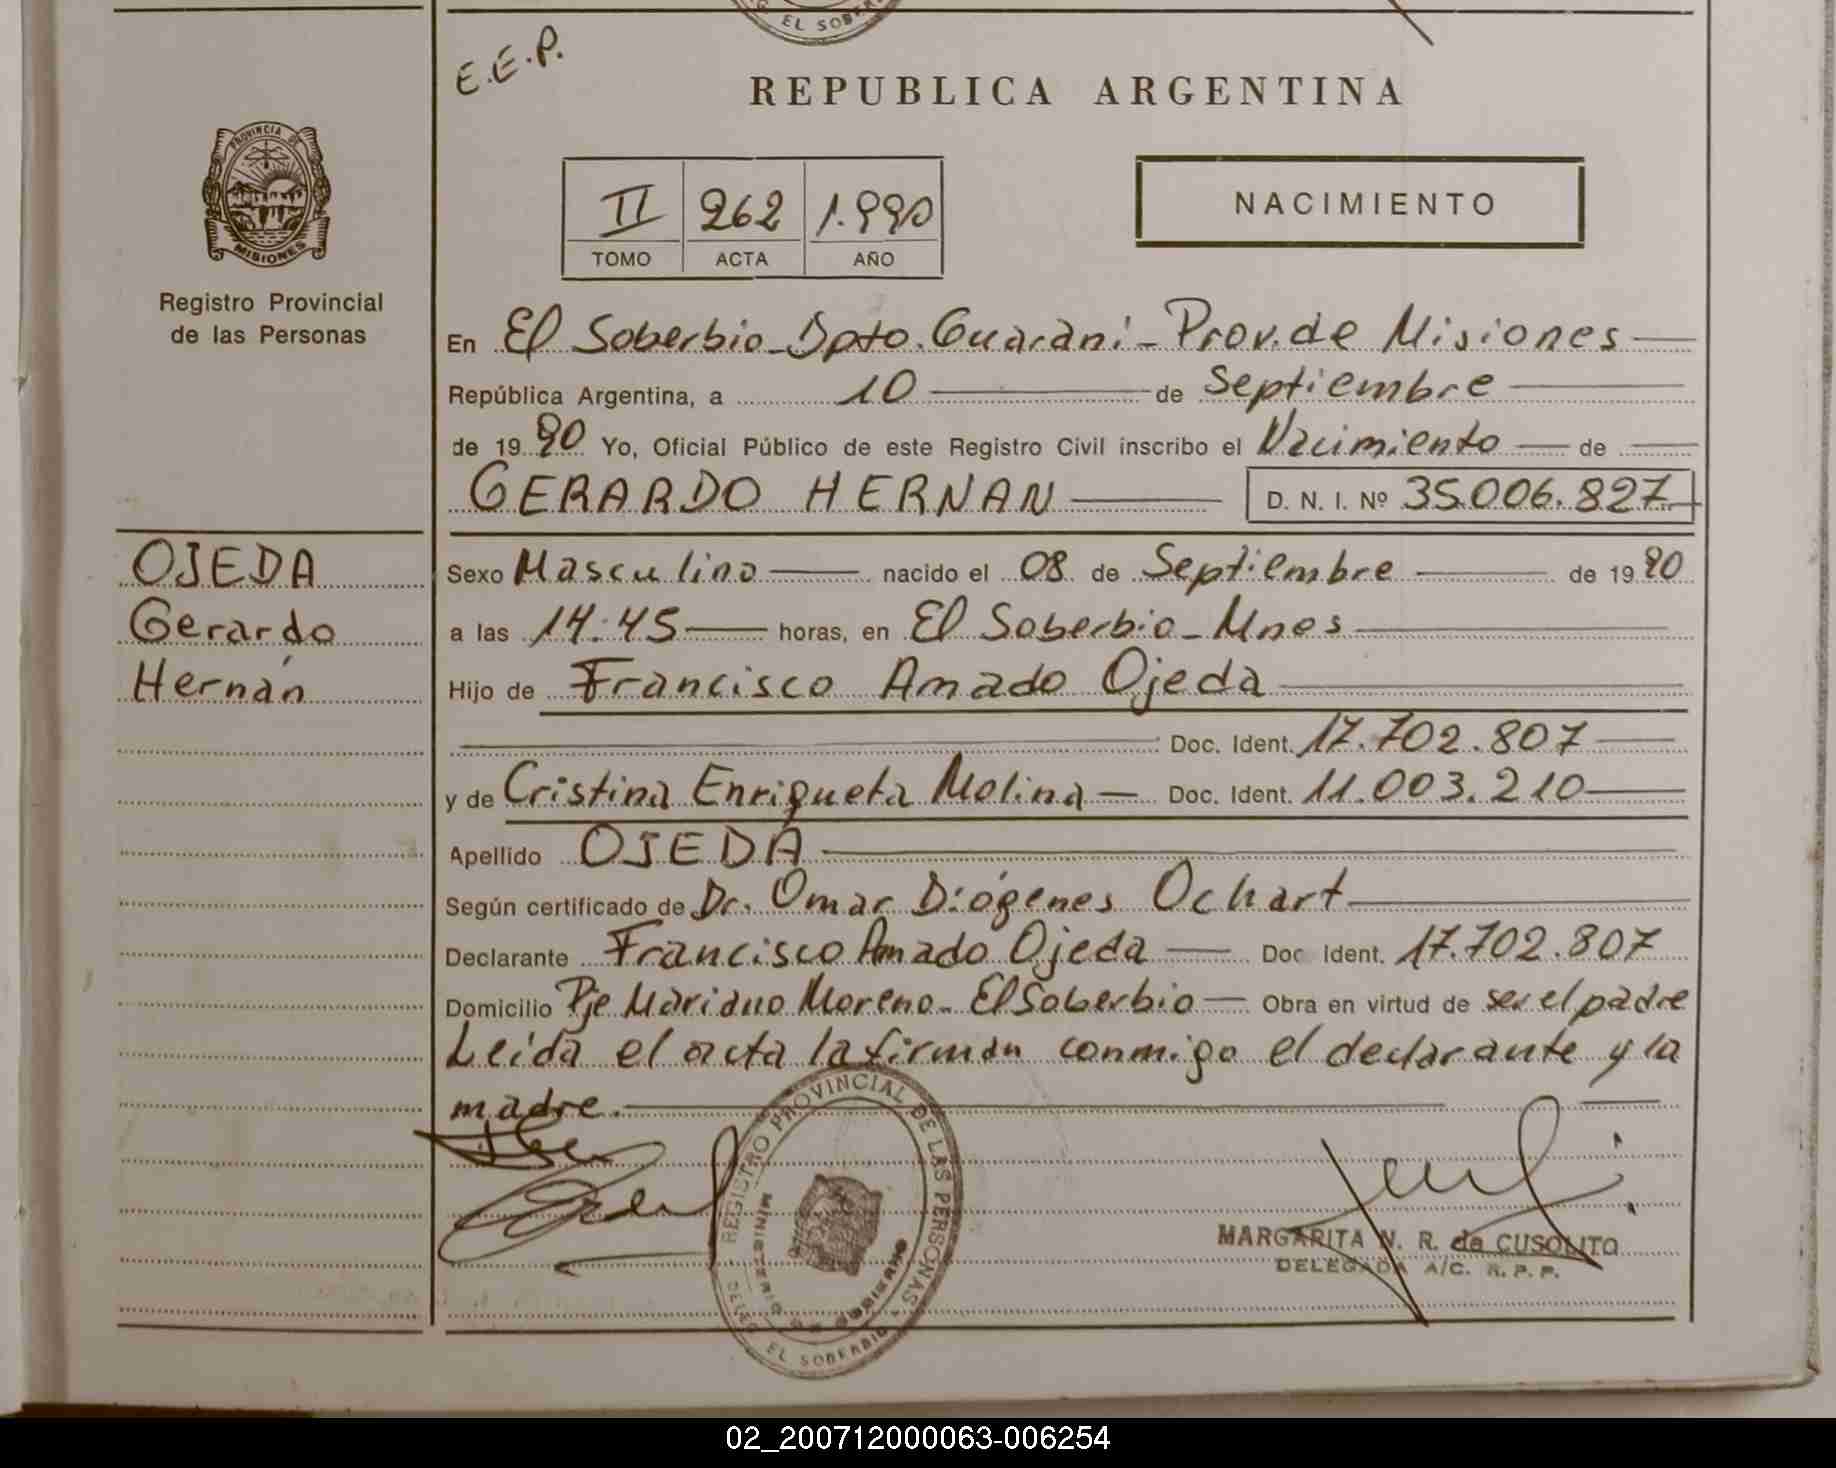 EL SOBER
E.E.P.
REPUBLICA ARGENTINA
PROVINCIA DE
MISIONES
Registro Provincial
de las Personas
II 262 1.990
TOMO ACTA AÑO
NACIMIENTO
En El Soberbio - Dpto. Guaraní - Prov. de Misiones
República Argentina, a 10 de Septiembre
de 1990 Yo, Oficial Público de este Registro Civil inscribo el Nacimiento de
GERARDO HERNAN D. N. I. Nº 35.006.827
OJEDA
Gerardo
Hernán
Sexo Masculino nacido el 08 de Septiembre de 1990
a las 14:45 horas, en El Soberbio - Mnes
Hijo de Francisco Amado Ojeda
Doc. Ident. 17.702.807
y de Cristina Enriqueta Molina Doc. Ident. 11.003.210
Apellido OJEDA
Según certificado de Dr. Omar Diógenes Ochart
Declarante Francisco Amado Ojeda Doc Ident. 17.702.807
Domicilio Pje Mariano Moreno - El Soberbio Obra en virtud de ser el padre
Leída el acta la firman conmigo el declarante y la
madre.
REGISTRO PROVINCIAL DE LAS PERSONAS
MINISTERIO DE GOBIERNO
DELEG. EL SOBERBIO
MARGARITA N. R. de CUSOLITO
DELEGADA A/C. R. P. P.
02_200712000063-006254